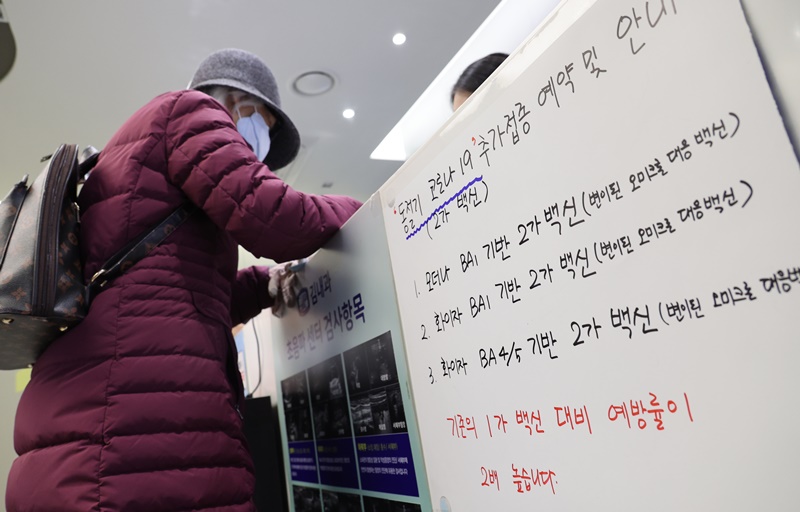 '동절기 코로나 19' 추가접종 예약 및 안내
(2가 백신)
1. 모더나 BA1 기반 2가 백신 (변이된 오미크로 대응 백신)
2. 화이자 BA1 기반 2가 백신 (변이된 오미크로 대응백신)
3. 화이자 BA4/5 기반 2가 백신 (변이된 오미크로 대응백
기존의 1가 백신 대비 예방률이
2배 높습니다.
김내과
초음파 센터 검사항목